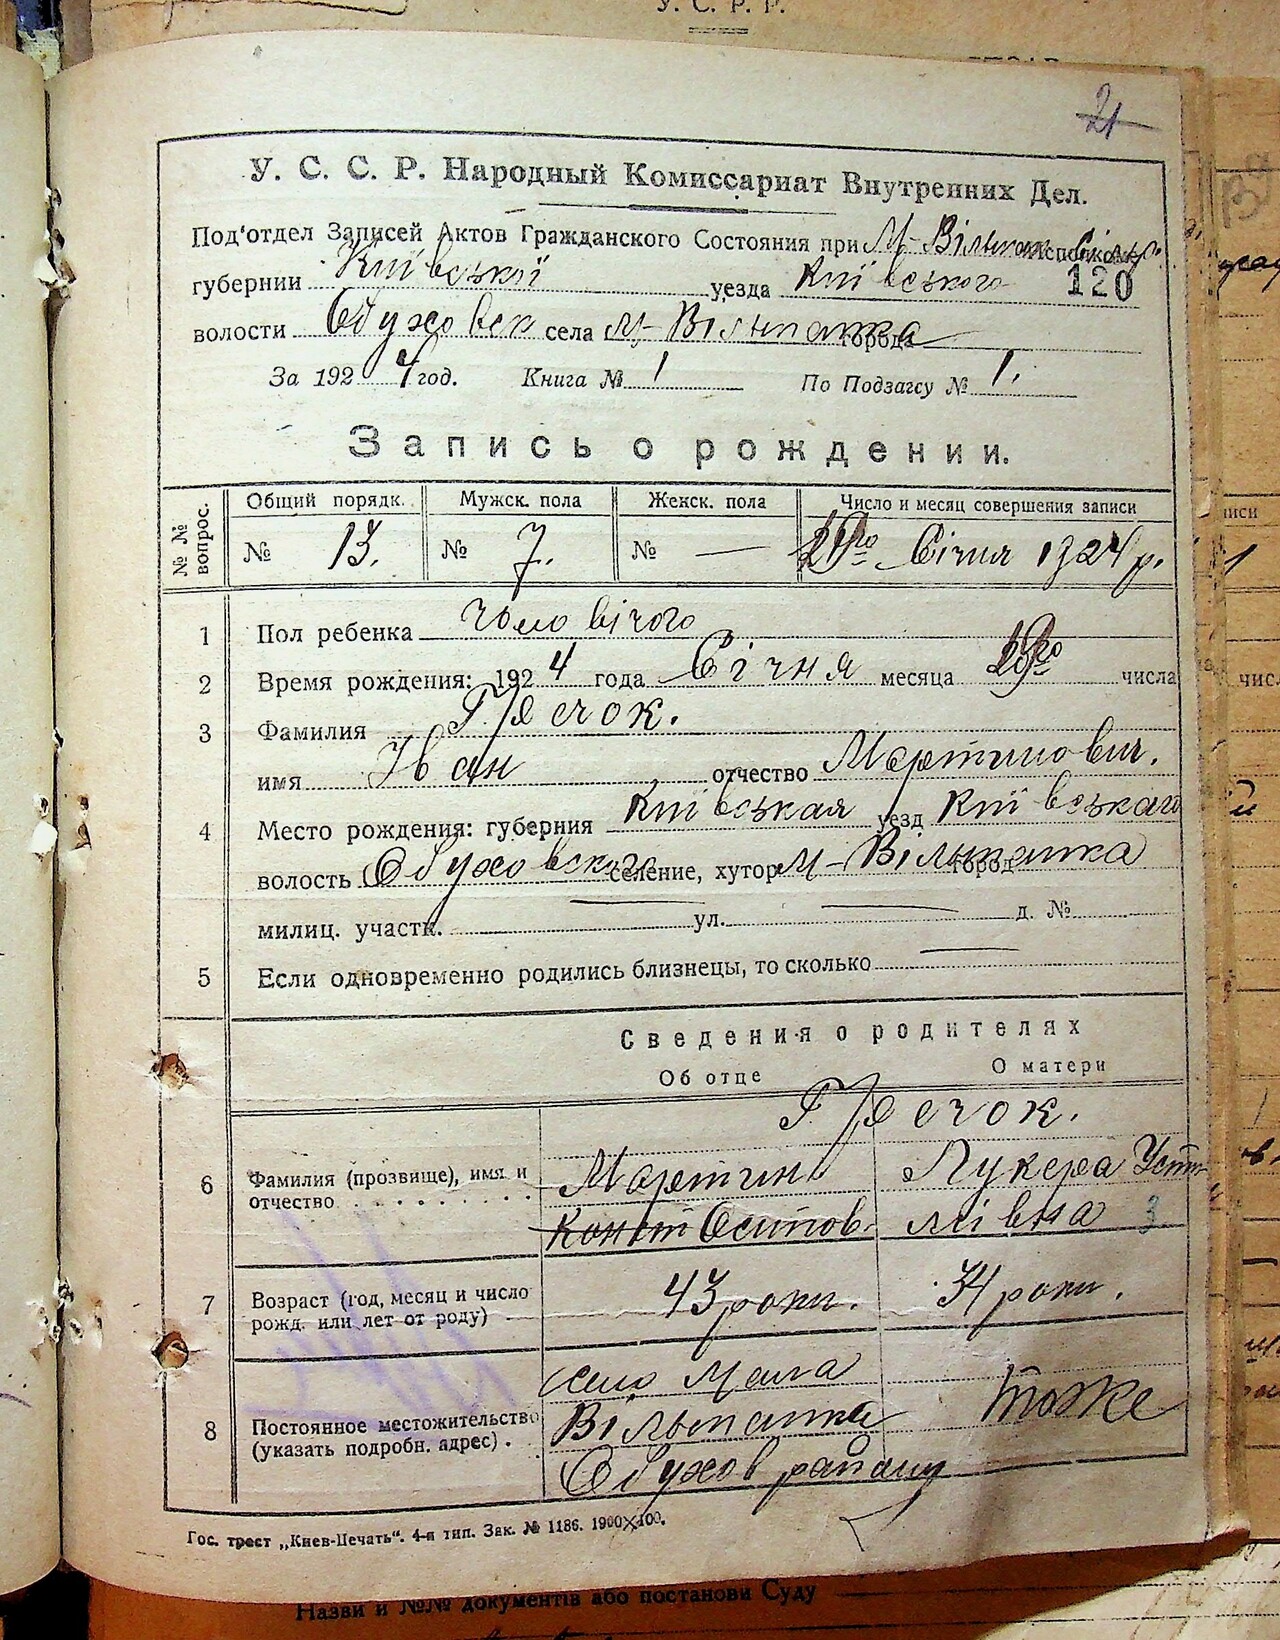 У. С. Р. Р.
21
У. С. С. Р. Народный Комиссариат Внутренних Дел.
Под'отдел Записей Актов Гражданского Состояния при М-Вільшан. Сільр. Исполкоме
губернии Київської уезда Київського 120
волости Обуховск села М-Вільшанка города
За 1924 год. Книга № 1 По Подзагсу № 1.
Запись о рождении.
№№ вопрос. Общий порядк. Мужск. пола Женск. пола Число и месяц совершения записи
№ 13. № 7. № — Січня 1924 р.
1 Пол ребенка чоловічого
2 Время рождения: 1924 года Січня месяца числа
3 Фамилия
имя Иван отчество Мартинович.
4 Место рождения: губерния Київськая уезд Київськаго
волость Обуховского селение, хутор М-Вільшанка город
милиц. участк. — ул. — д. №
5 Если одновременно родились близнецы, то сколько —
Сведения о родителях
Об отце О матери
6 Фамилия (прозвище), имя и Мартин Лукера Уст
отчество Конст Осипов. мівна 3
7 Возраст (год, месяц и число 43 роки. 34 роки.
рожд. или лет от роду)
село Мала
8 Постоянное местожительство Вільшанка тоже
(указать подробн. адрес). Обухов району
Гос. трест „Киев-Печать". 4-я тип. Зак. № 1186. 1900×100.
Назви и №№ документів або постанови Суду